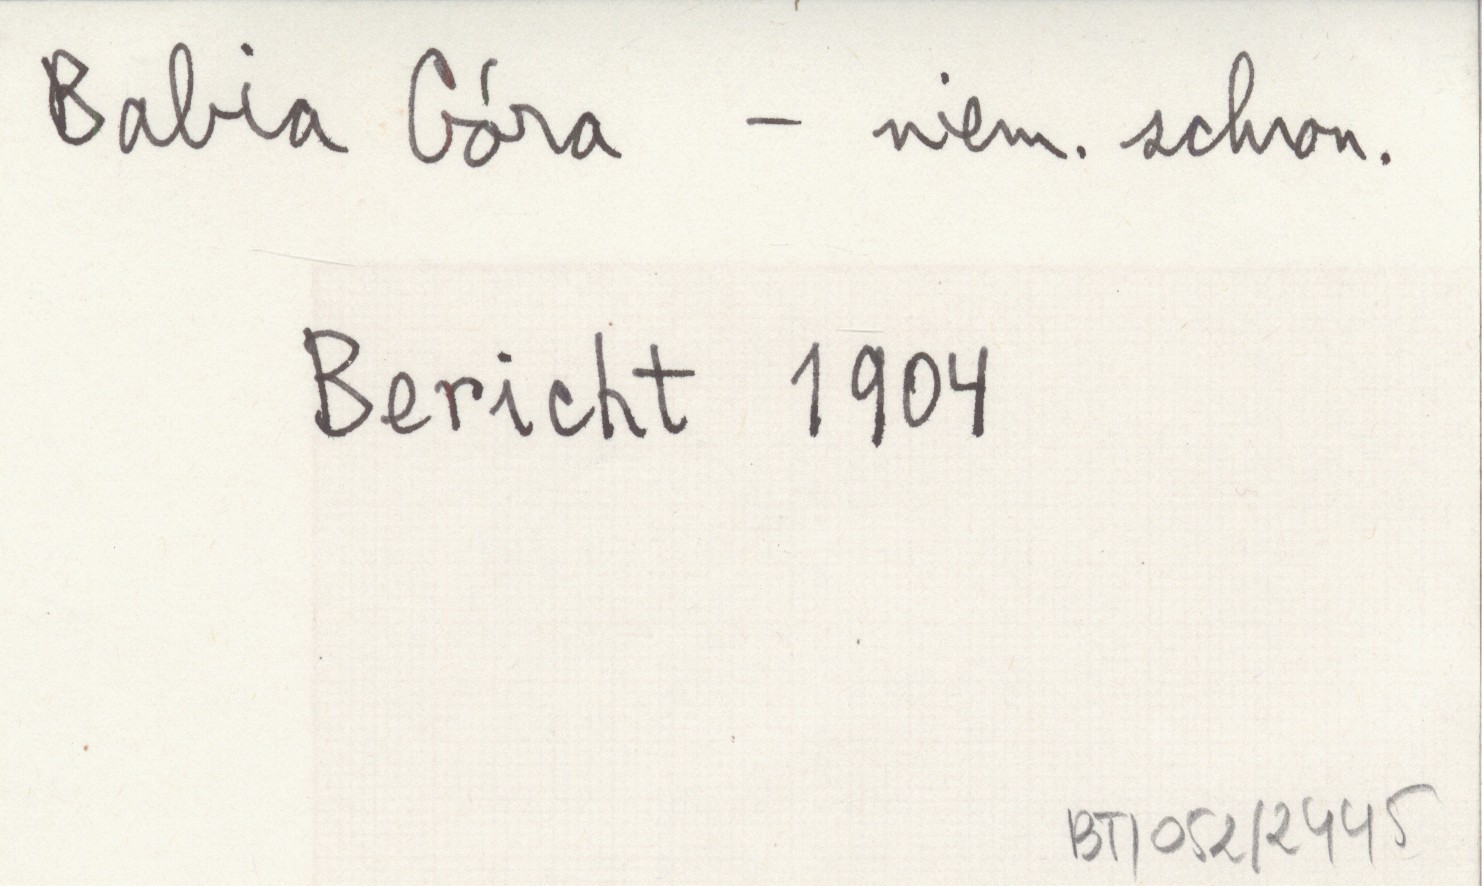 Babia Góra - niem. schron.
Bericht 1904
BT/052/2445